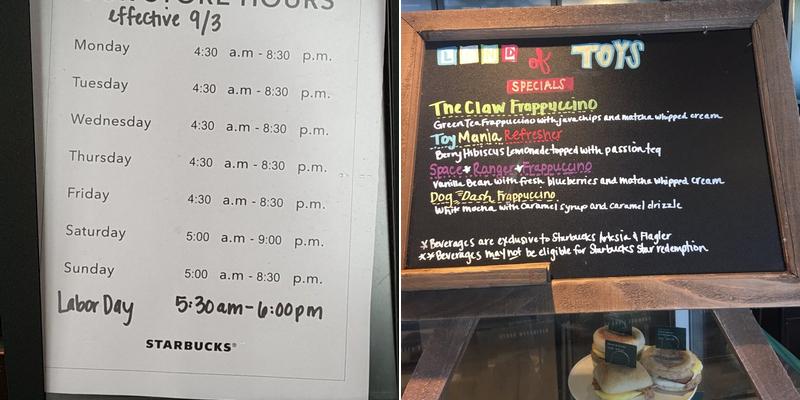 STORE HOURS
effective 9/3
Monday 4:30 a.m - 8:30 p.m.
Tuesday 4:30 a.m - 8:30 p.m.
Wednesday 4:30 a.m - 8:30 p.m.
Thursday 4:30 a.m - 8:30 p.m.
Friday 4:30 a.m - 8:30 p.m.
Saturday 5:00 a.m - 9:00 p.m.
Sunday 5:00 a.m - 8:30 p.m.
Labor Day 5:30am-6:00pm
STARBUCKS®
of TOYS
SPECIALS
The Claw Frappuccino
Green Tea Frappuccino with java chips and matcha whipped cream
Toy Mania Refresher
Berry Hibiscus Lemonade topped with passion tea
Space Ranger Frappuccino
Vanilla Bean with fresh blueberries and matcha whipped cream
Dog Dash Frappuccino
White mocha with caramel syrup and caramel drizzle
*Beverages are exclusive to Starbucks & Flagler
**Beverages may not be eligible for Starbucks Star redemption